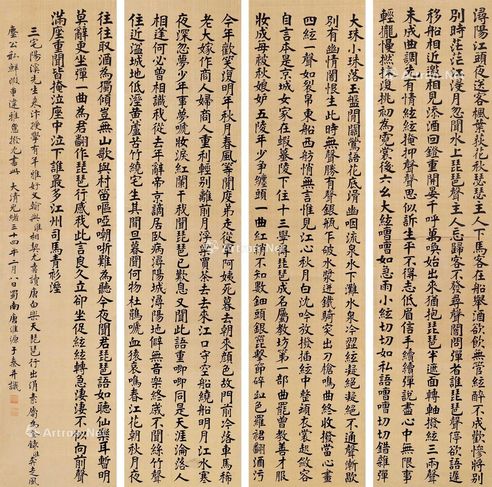 潯陽江頭夜送客楓葉荻花秋瑟瑟主人下馬客在船舉酒欲飲無管絃醉不成歡慘將別
別時茫茫江浸月忽聞水上琵琶聲主人忘歸客不發尋聲闇問彈者誰琵琶聲停欲語遲
移船相近邀相見添酒回鐙重開宴千呼萬喚始出來猶抱琵琶半遮面轉軸撥絃三兩聲
未成曲調先有情絃絃掩抑聲聲思似訴生平不得志低眉信手續續彈說盡心中無限事
輕攏慢撚抹復挑初為霓裳後六幺大絃嘈嘈如急雨小絃切切如私語嘈嘈切切錯雜彈
大珠小珠落玉盤間關鶯語花底滑幽咽流泉水下灘水泉冷澀絃凝絕凝絕不通聲漸歇
別有幽情闇恨生此時無聲勝有聲銀瓶乍破水漿迸鐵騎突出刀槍鳴曲終收撥當心畫
四絃一聲如裂帛東船西舫悄無言惟見江心秋月白沈吟放撥插絃中整頓衣裳起斂容
自言本是京城女家在蝦蟇陵下住十三學得琵琶成名屬教坊第一部曲罷曾教善才服
妝成每被秋娘妒五陵年少爭纏頭一曲紅綃不知數鈿頭銀篦擊節碎血色羅裙翻酒污
今年歡笑復明年秋月春風等閒度弟走從軍阿姨死暮去朝來顏色故門前冷落車馬稀
老大嫁作商人婦商人重利輕別離前月浮梁買茶去去來江口守空船繞船明月江水寒
夜深忽夢少年事夢啼妝淚紅闌干我聞琵琶已歎息又聞此語重唧唧同是天涯淪落人
相逢何必曾相識我從去年辭帝京謫居臥病潯陽城潯陽地僻無音樂終歲不聞絲竹聲
住近湓城地低溼黃蘆苦竹繞宅生其間旦暮聞何物杜鵑啼血猿哀鳴春江花朝秋月夜
往往取酒為獨傾豈無山歌與村笛嘔啞嘲哳難為聽今夜聞君琵琶語如聽仙樂耳暫明
莫辭更坐彈一曲為君翻作琵琶行感我此言良久立卻坐促絃絃轉急淒淒不似向前聲
滿座重聞皆掩泣座中泣下誰最多江州司馬青衫溼
三宅陽溪先生唐白樂天琵琶行
大清光緒三十四年一月八日蜀南唐維源